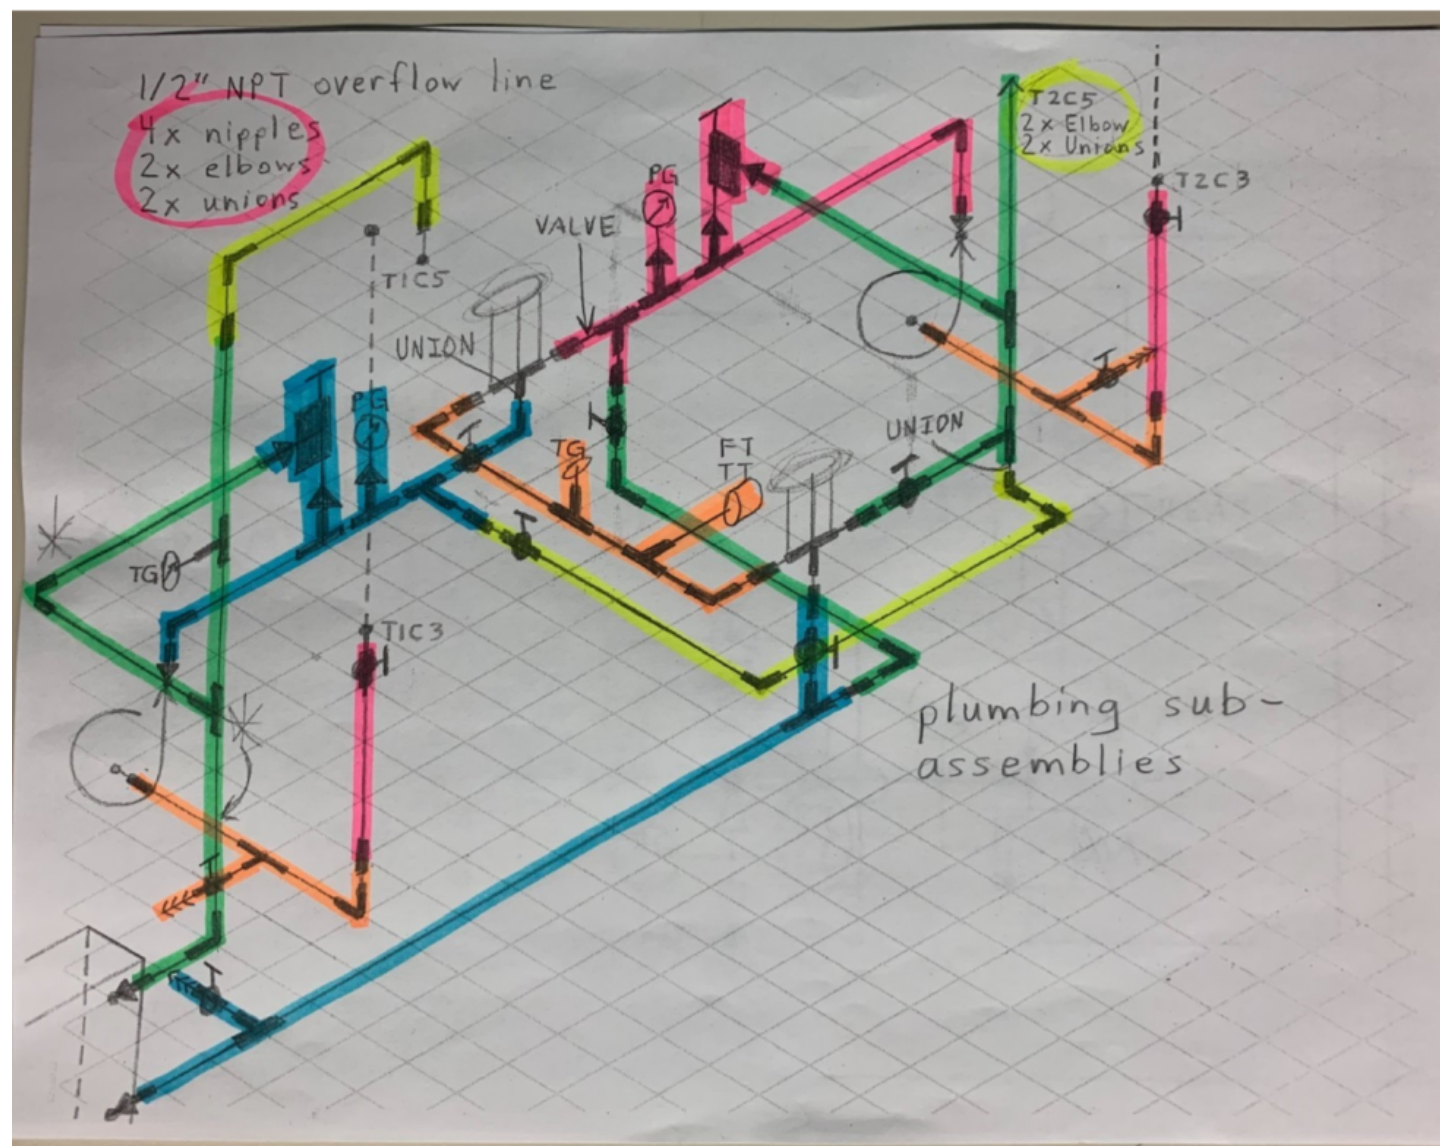 1/2" NPT overflow line
4x nipples
2x elbows
2x unions
T2C5
2x Elbow
2x Unions
T2C3
PG
VALVE
T1C5
UNION
PG
UNION
TG
FT
TT
TG
T1C3
plumbing sub-
assemblies